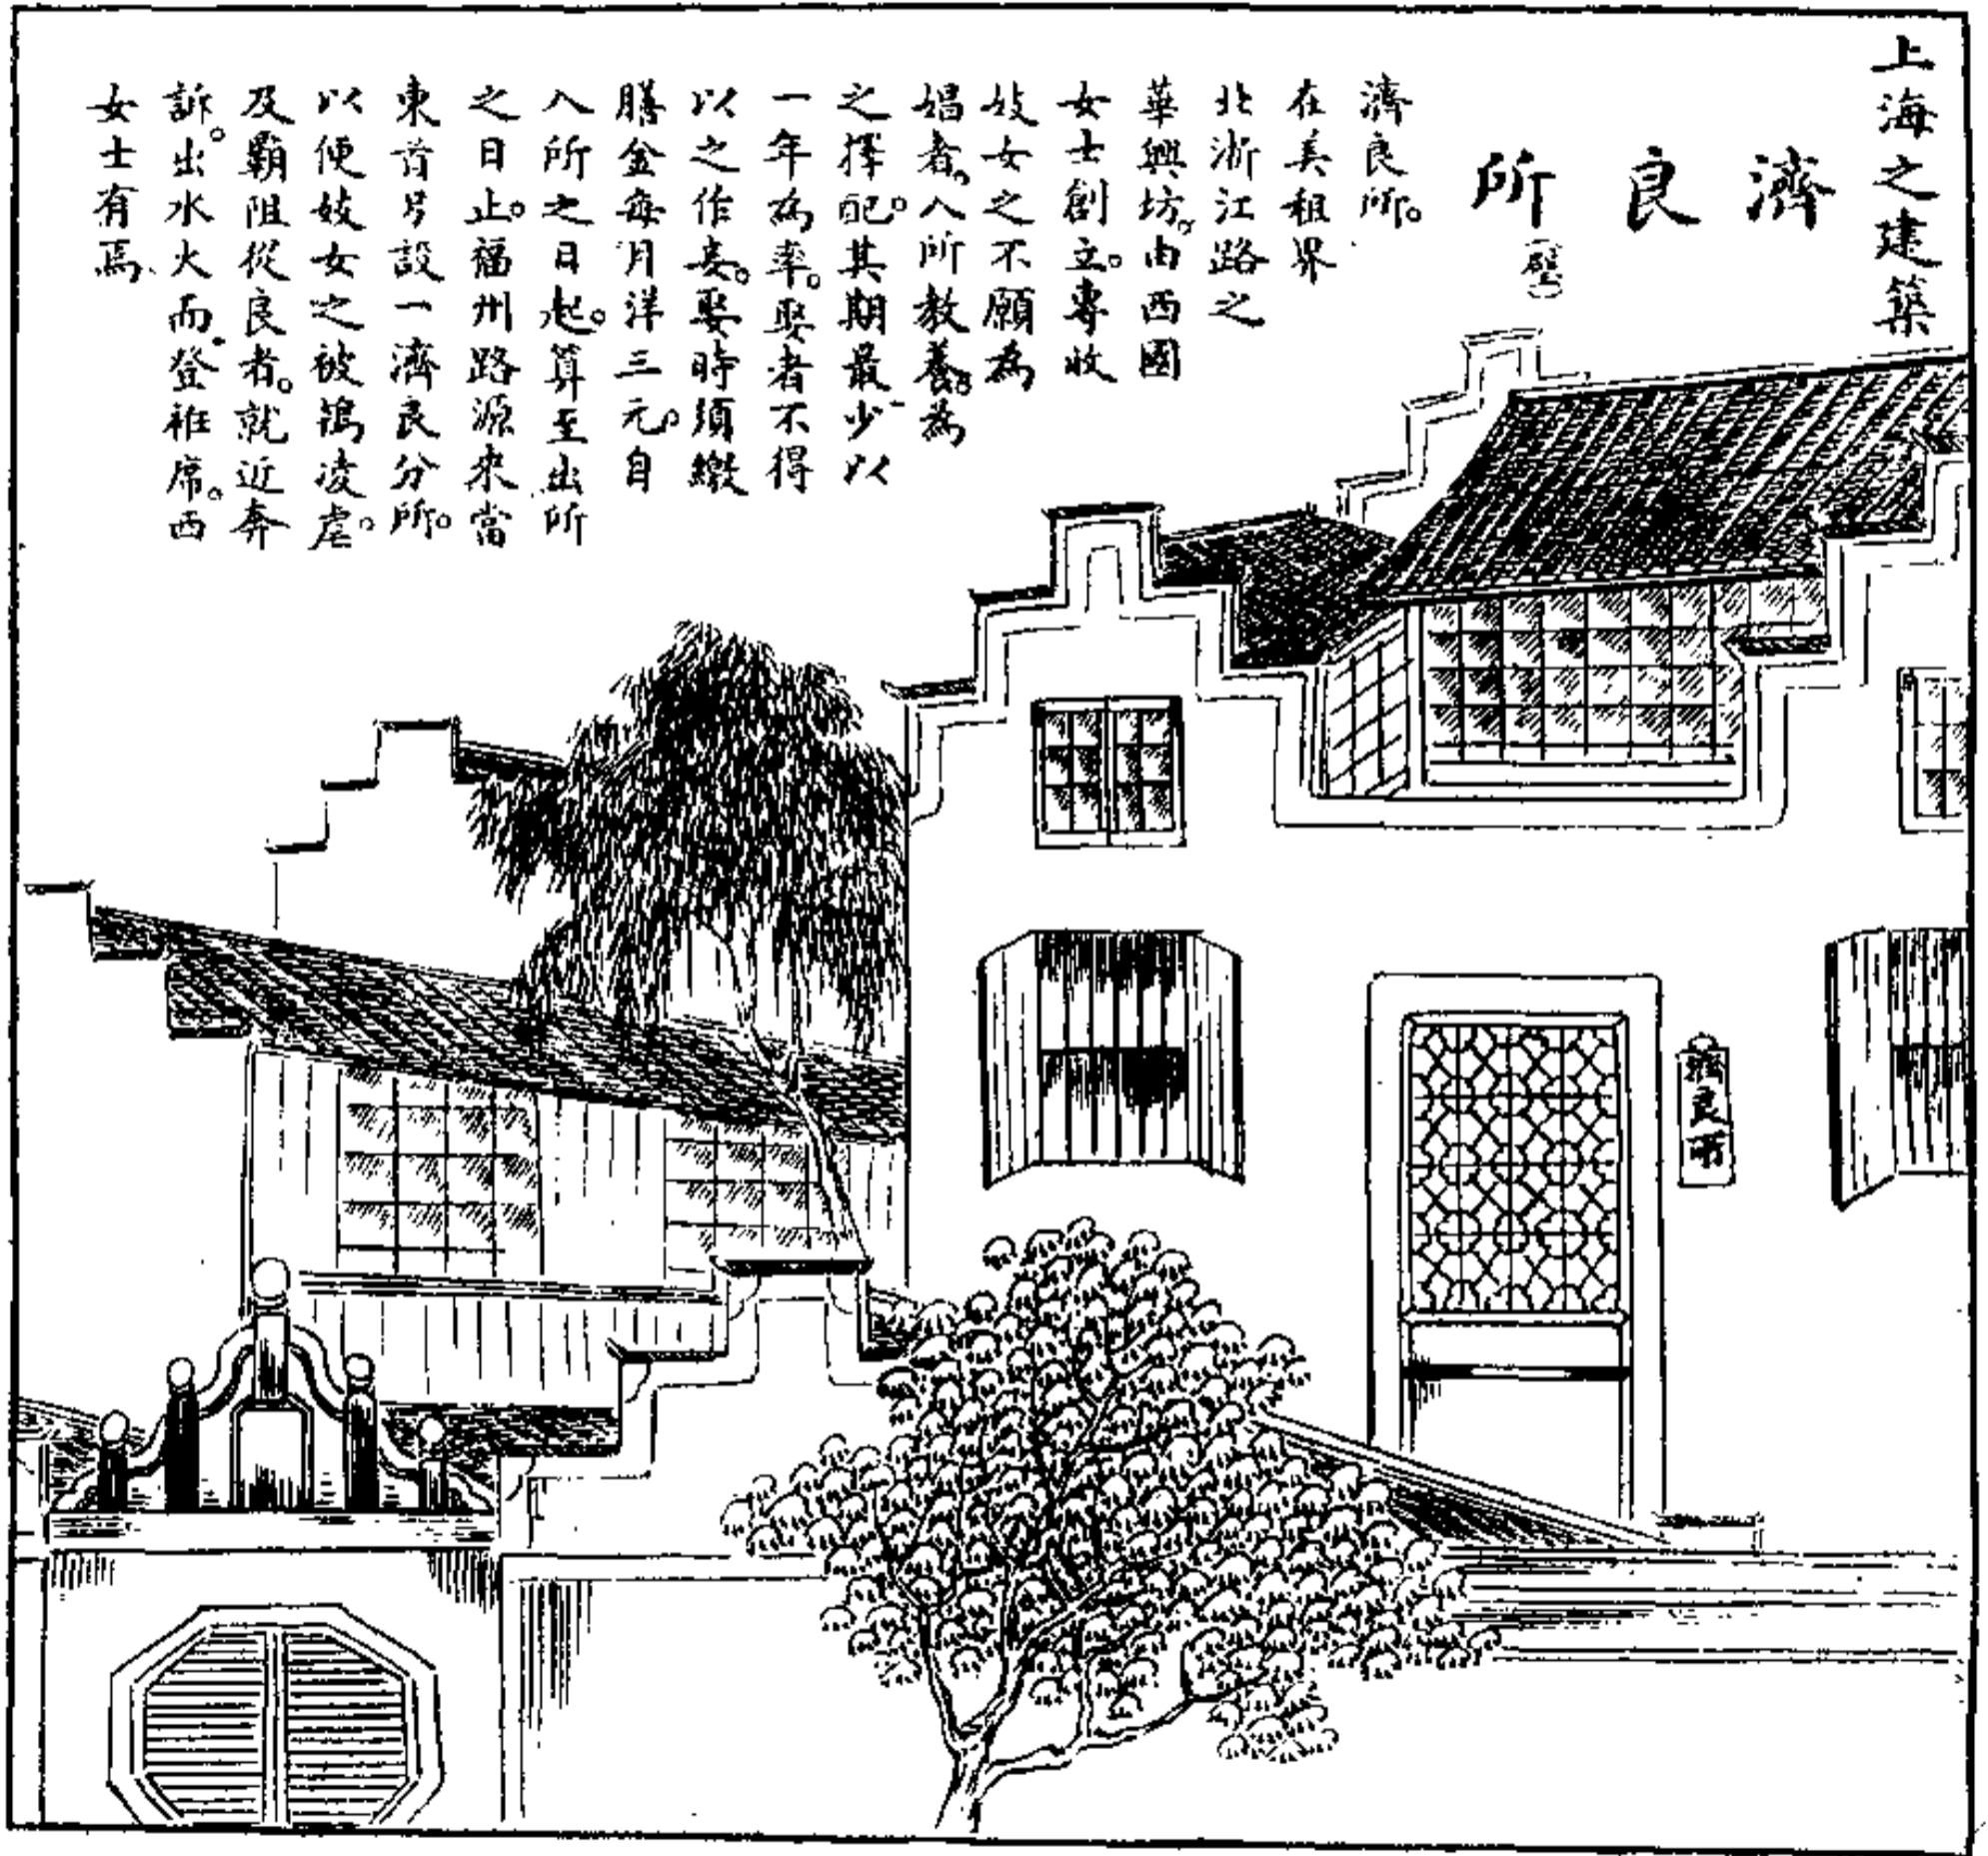 上海之建築
濟良所
濟良所。
在美租界
北浙江路之
華興坊。由西國
女士創立。專收
妓女之不願為
娼者。入所教養。為
之擇配。其期最少以
一年為率。娶者不得
以之作妾。娶時須繳
膳金每月洋三元。自
入所之日起。算至出所
之日止。福州路源來當
東首另設一濟良分所。
以便妓女之被鴇凌虐。
及霸阻從良者。就近奔
訴。出水火而登袵席。西
女士有焉
濟良所